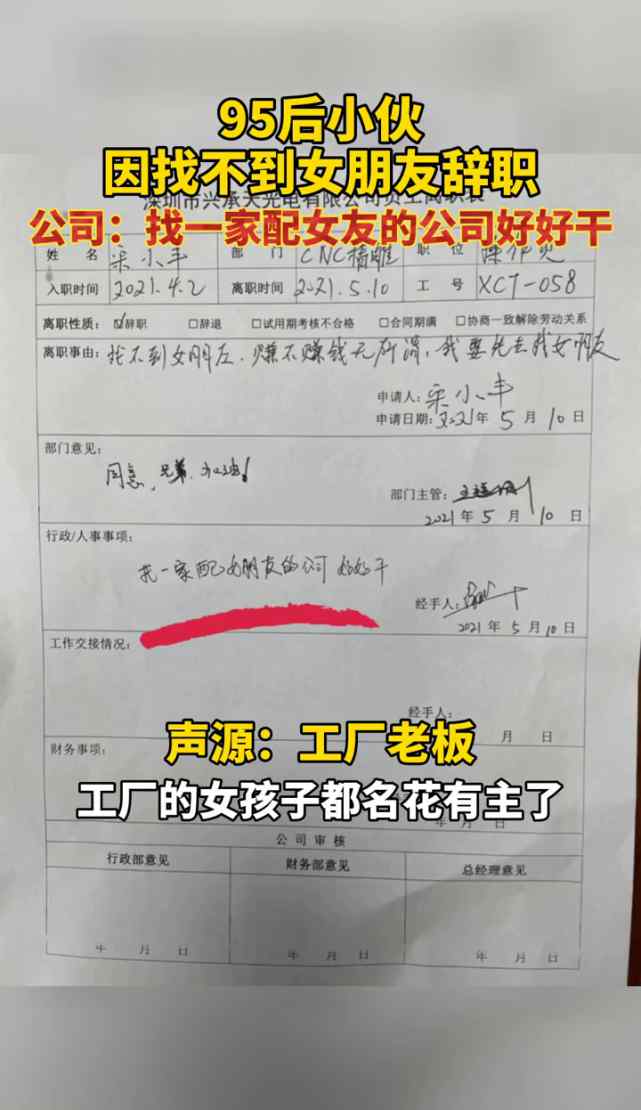 95后小伙
因找不到女朋友辞职
深圳市兴承天光电有限公司员工离职表
公司：找一家配女友的公司好好干
姓 名 宋小丰 部 门 CNC精雕 职 位
入职时间 2021.4.2 离职时间 2021.5.10 工 号 XCT-058
离职性质：☑辞职 □辞退 □试用期考核不合格 □合同期满 □协商一致解除劳动关系
离职事由：找不到女朋友，赚不赚钱无所谓，我要先去找女朋友
申请人：宋小丰
申请日期：2021年 5 月 10 日
部门意见：
同意，兄弟，加油！
部门主管：
2021 年 5 月 10 日
行政/人事事项：
找一家配女朋友的公司 好好干
经手人：
2021 年 5 月 10 日
工作交接情况：
经手人：
月 日
声源：工厂老板
财务事项：
工厂的女孩子都名花有主了
年 月 日
公 司 审 核
行政部意见 财务部意见 总经理意见
年 月 日 年 月 日 年 月 日